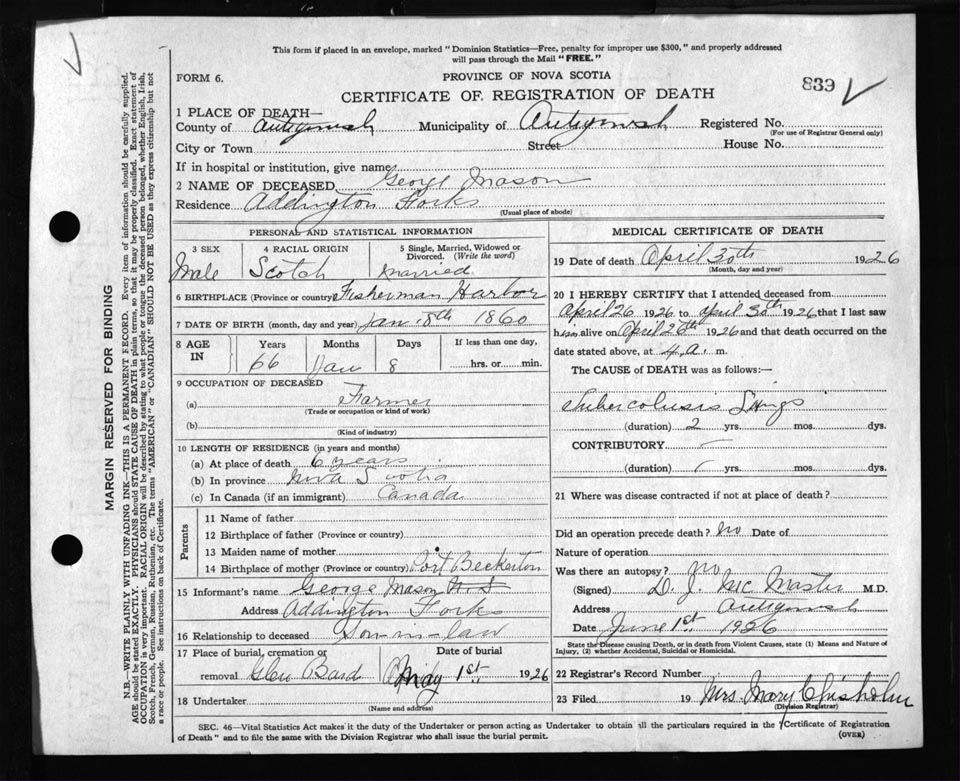 This form if placed in an envelope, marked "Dominion Statistics—Free, penalty for improper use $300," and properly addressed
will pass through the Mail "FREE."
FORM 6.
PROVINCE OF NOVA SCOTIA
839
CERTIFICATE OF REGISTRATION OF DEATH
1 PLACE OF DEATH—
County of Antigonish Municipality of Antigonish Registered No.
(For use of Registrar General only)
City or Town Street House No.
If in hospital or institution, give name
2 NAME OF DECEASED George Mason
Residence Addington Forks
(Usual place of abode)
PERSONAL AND STATISTICAL INFORMATION
3 SEX 4 RACIAL ORIGIN 5 Single, Married, Widowed or Divorced. (Write the word)
Male Scotch Married
6 BIRTHPLACE (Province or country) Fisherman Harbor
7 DATE OF BIRTH (month, day and year) Jan 8th 1860
8 AGE IN Years Months Days If less than one day,
66 Jan 8 hrs. or min.
9 OCCUPATION OF DECEASED
(a) Farmer
(Trade or occupation or kind of work)
(b)
(Kind of industry)
10 LENGTH OF RESIDENCE (in years and months)
(a) At place of death 6 years
(b) In province Nova Scotia
(c) In Canada (if an immigrant) Canada
Parents
11 Name of father
12 Birthplace of father (Province or country)
13 Maiden name of mother
14 Birthplace of mother (Province or country) Port Beckerton
15 Informant's name George Mason
Address Addington Forks
16 Relationship to deceased Son-in-law
17 Place of burial, cremation or Date of burial
removal Glen Bard May 1st 1926
18 Undertaker
(Name and address)
MEDICAL CERTIFICATE OF DEATH
19 Date of death April 30th 1926
(Month, day and year)
20 I HEREBY CERTIFY that I attended deceased from
April 26 1926 to April 30th 1926 that I last saw
him alive on April 26th 1926 and that death occurred on the
date stated above, at 4 a. m.
The CAUSE of DEATH was as follows:—
Tuberculosis Lungs
(duration) 2 yrs. mos. dys.
CONTRIBUTORY
(duration) yrs. mos. dys.
21 Where was disease contracted if not at place of death?
Did an operation precede death? no Date of
Nature of operation
Was there an autopsy? no
(Signed) D. J. McMaster M.D.
Address Antigonish
Date June 1st 1926
State the Disease causing Death, or in death from Violent Causes, state (1) Means and Nature of
Injury, (2) whether Accidental, Suicidal or Homicidal.
22 Registrar's Record Number
23 Filed 19 Mrs. Mary Chisholm
(Division Registrar)
SEC. 46—Vital Statistics Act makes it the duty of the Undertaker or person acting as Undertaker to obtain all the particulars required in the "Certificate of Registration
of Death" and to file the same with the Division Registrar who shall issue the burial permit.
(OVER)
MARGIN RESERVED FOR BINDING
N.B.—WRITE PLAINLY WITH UNFADING INK—THIS IS A PERMANENT RECORD. Every item of information should be carefully supplied.
AGE should be stated EXACTLY. PHYSICIANS should STATE CAUSE OF DEATH in plain terms, so that it may be properly classified. Exact statement of
OCCUPATION is very important. RACIAL ORIGIN will be described by stating to what people or tongue the deceased person belonged, whether English, Irish,
Scotch, French, German, Russian, Ruthenian, etc. The terms "AMERICAN" or "CANADIAN" SHOULD NOT BE USED as they express citizenship but not
a race or people. See instructions on back of Certificate.